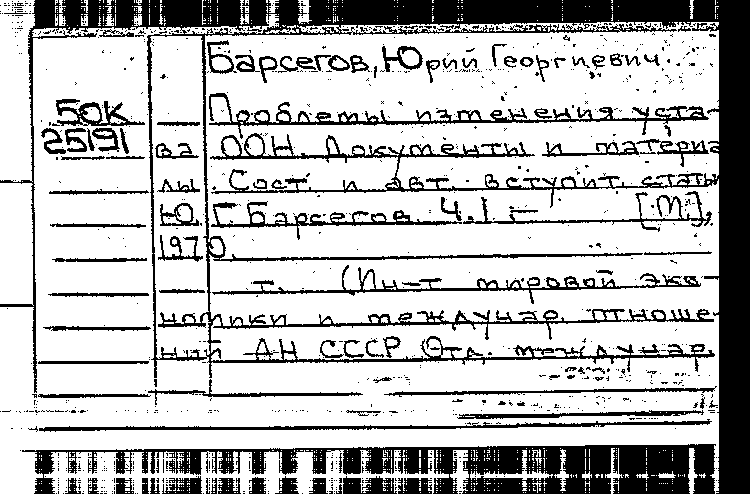 Барсегов, Юрий Георгиевич
50К Проблемы изменения уста-
25191 ва ООН. Документы и материа
лы. Сост. и авт. вступит. статьи
Ю. Г. Барсегов. Ч. I – [М.],
1970.
т. (Ин-т мировой эко-
номики и междунар. отноше-
ний АН СССР. Отд. междунар.